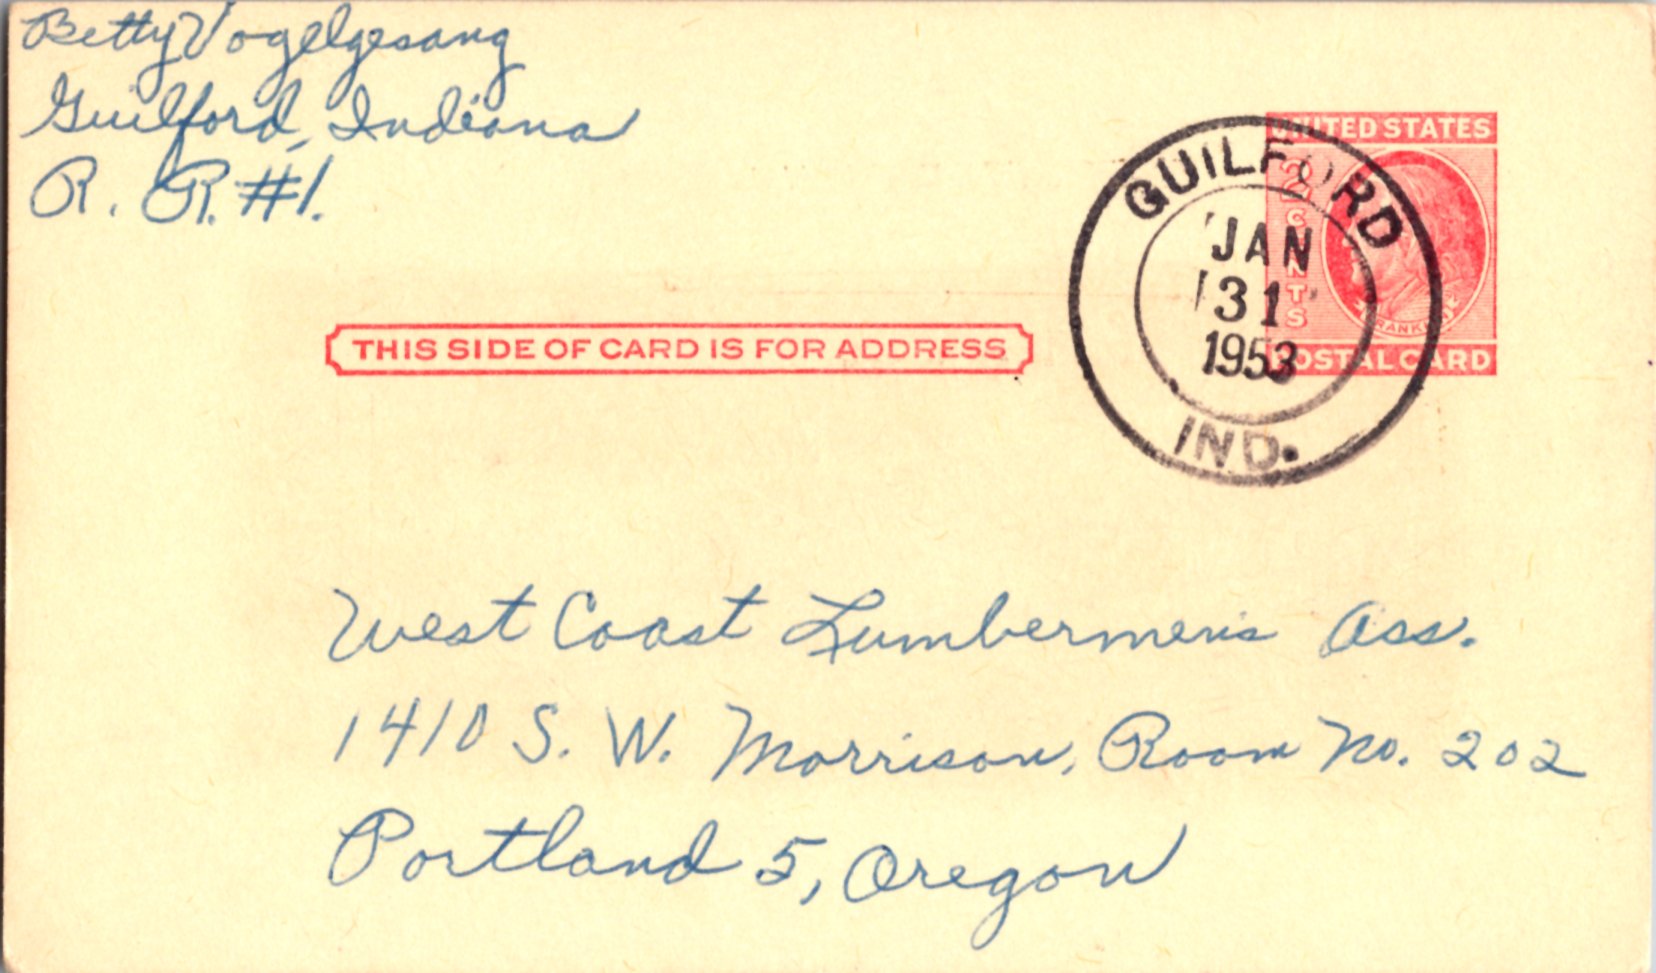 Betty Vogelgesang
Guilford, Indiana
R. R. #1.
UNITED STATES
2 CENTS
FRANKLIN
POSTAL CARD
GUILFORD
JAN
31
1953
IND.
THIS SIDE OF CARD IS FOR ADDRESS
West Coast Lumbermen's Ass.
1410 S. W. Morrison, Room No. 202
Portland 5, Oregon